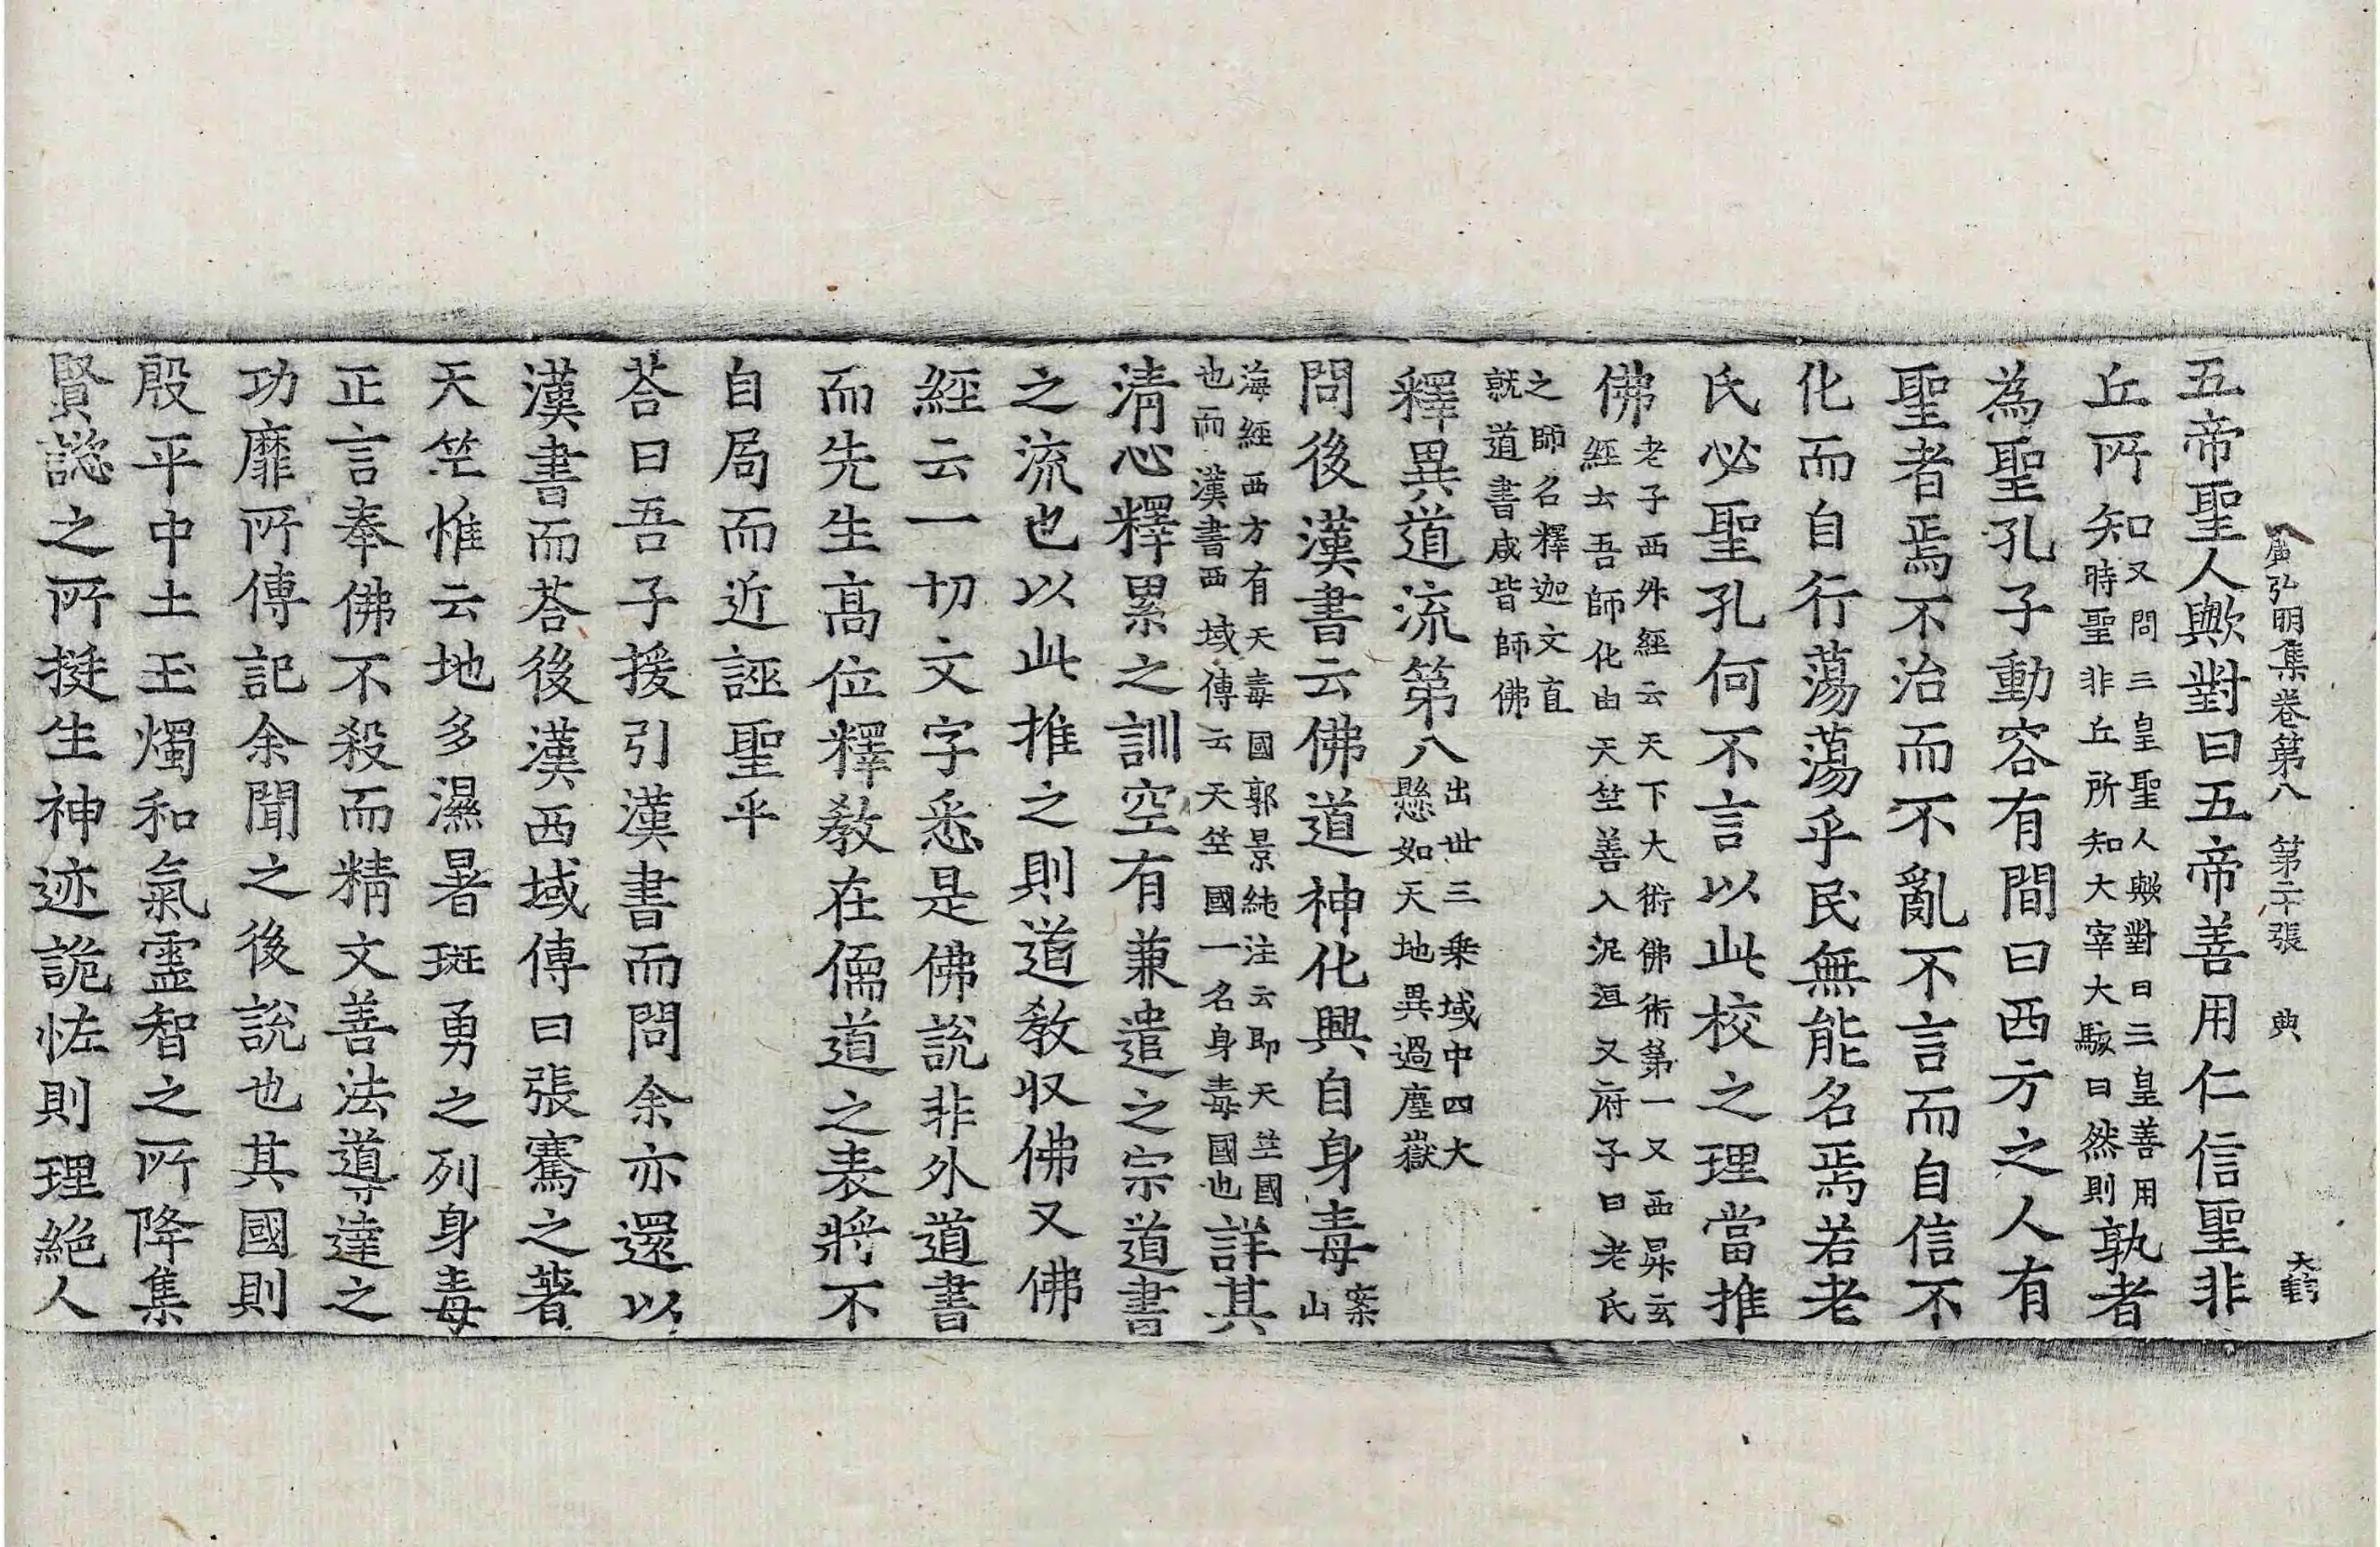 廣弘明集卷第八 第二十張 典
五帝聖人歟對曰五帝善用仁信聖非
丘所知又問三皇聖人歟對曰三皇善用時聖非丘所知大宰大駭曰然則孰者
為聖孔子動容有間曰西方之人有
聖者焉不治而不亂不言而自信不
化而自行蕩蕩乎民無能名焉若老
氏必聖孔何不言以此校之理當推
佛老子西升經云天下大術佛術第一又西昇玄經云吾師化由天竺善入泥洹又府子曰老氏
之師名釋迦文直就道書咸皆師佛
釋異道流第八出世三乗域中四大懸如天地異過塵嶽
問後漢書云佛道神化興自身毒案山
海經西方有天毒國郭景純注云即天竺國也而漢書西域傳云天竺國一名身毒國也詳其
清心釋累之訓空有兼遣之宗道書
之流也以此推之則道教収佛又佛
經云一切文字悉是佛說非外道書
而先生高位釋教在儒道之表將不
自局而近誣聖乎
荅曰吾子援引漢書而問余亦還以
漢書而荅後漢西域傳曰張騫之著
天竺惟云地多濕暑斑勇之列身毒
正言奉佛不殺而精文善法導達之
功靡所傳記余聞之後說也其國則
殷平中土玉燭和氣靈智之所降集
賢懿之所挺生神迹詭恠則理絕人